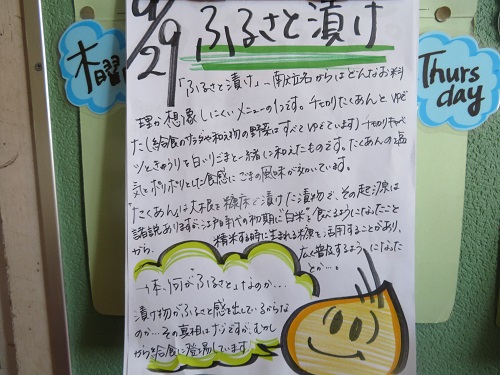 9/29 ふるさと漬け
木曜
Thurs
day
「ふるさと漬け」…献立名からはどんなお料
理か想像しにくいメニューの1つです。千切りたくあんとゆで
た(給食のサラダや和え物の野菜はすべてゆでています)千切りキャベ
ツときゅうりを白いりごまと一緒に和えたものです。たくあんの塩
気とポリポリとした食感にごまの風味が効いています。
「たくあん」は大根を糠床で漬けた漬物で、その起源は
諸説ありますが江戸時代の初期に“白米”を食べるようになったこと
から、精米する時に生まれる糠を活用することがあり、
広く普及するようになった
とか…。
一体、何が「ふるさと」なのか…
漬け物がふるさと感を出しているからな
のか…その真相はナゾですが、むかし
から給食に登場しています